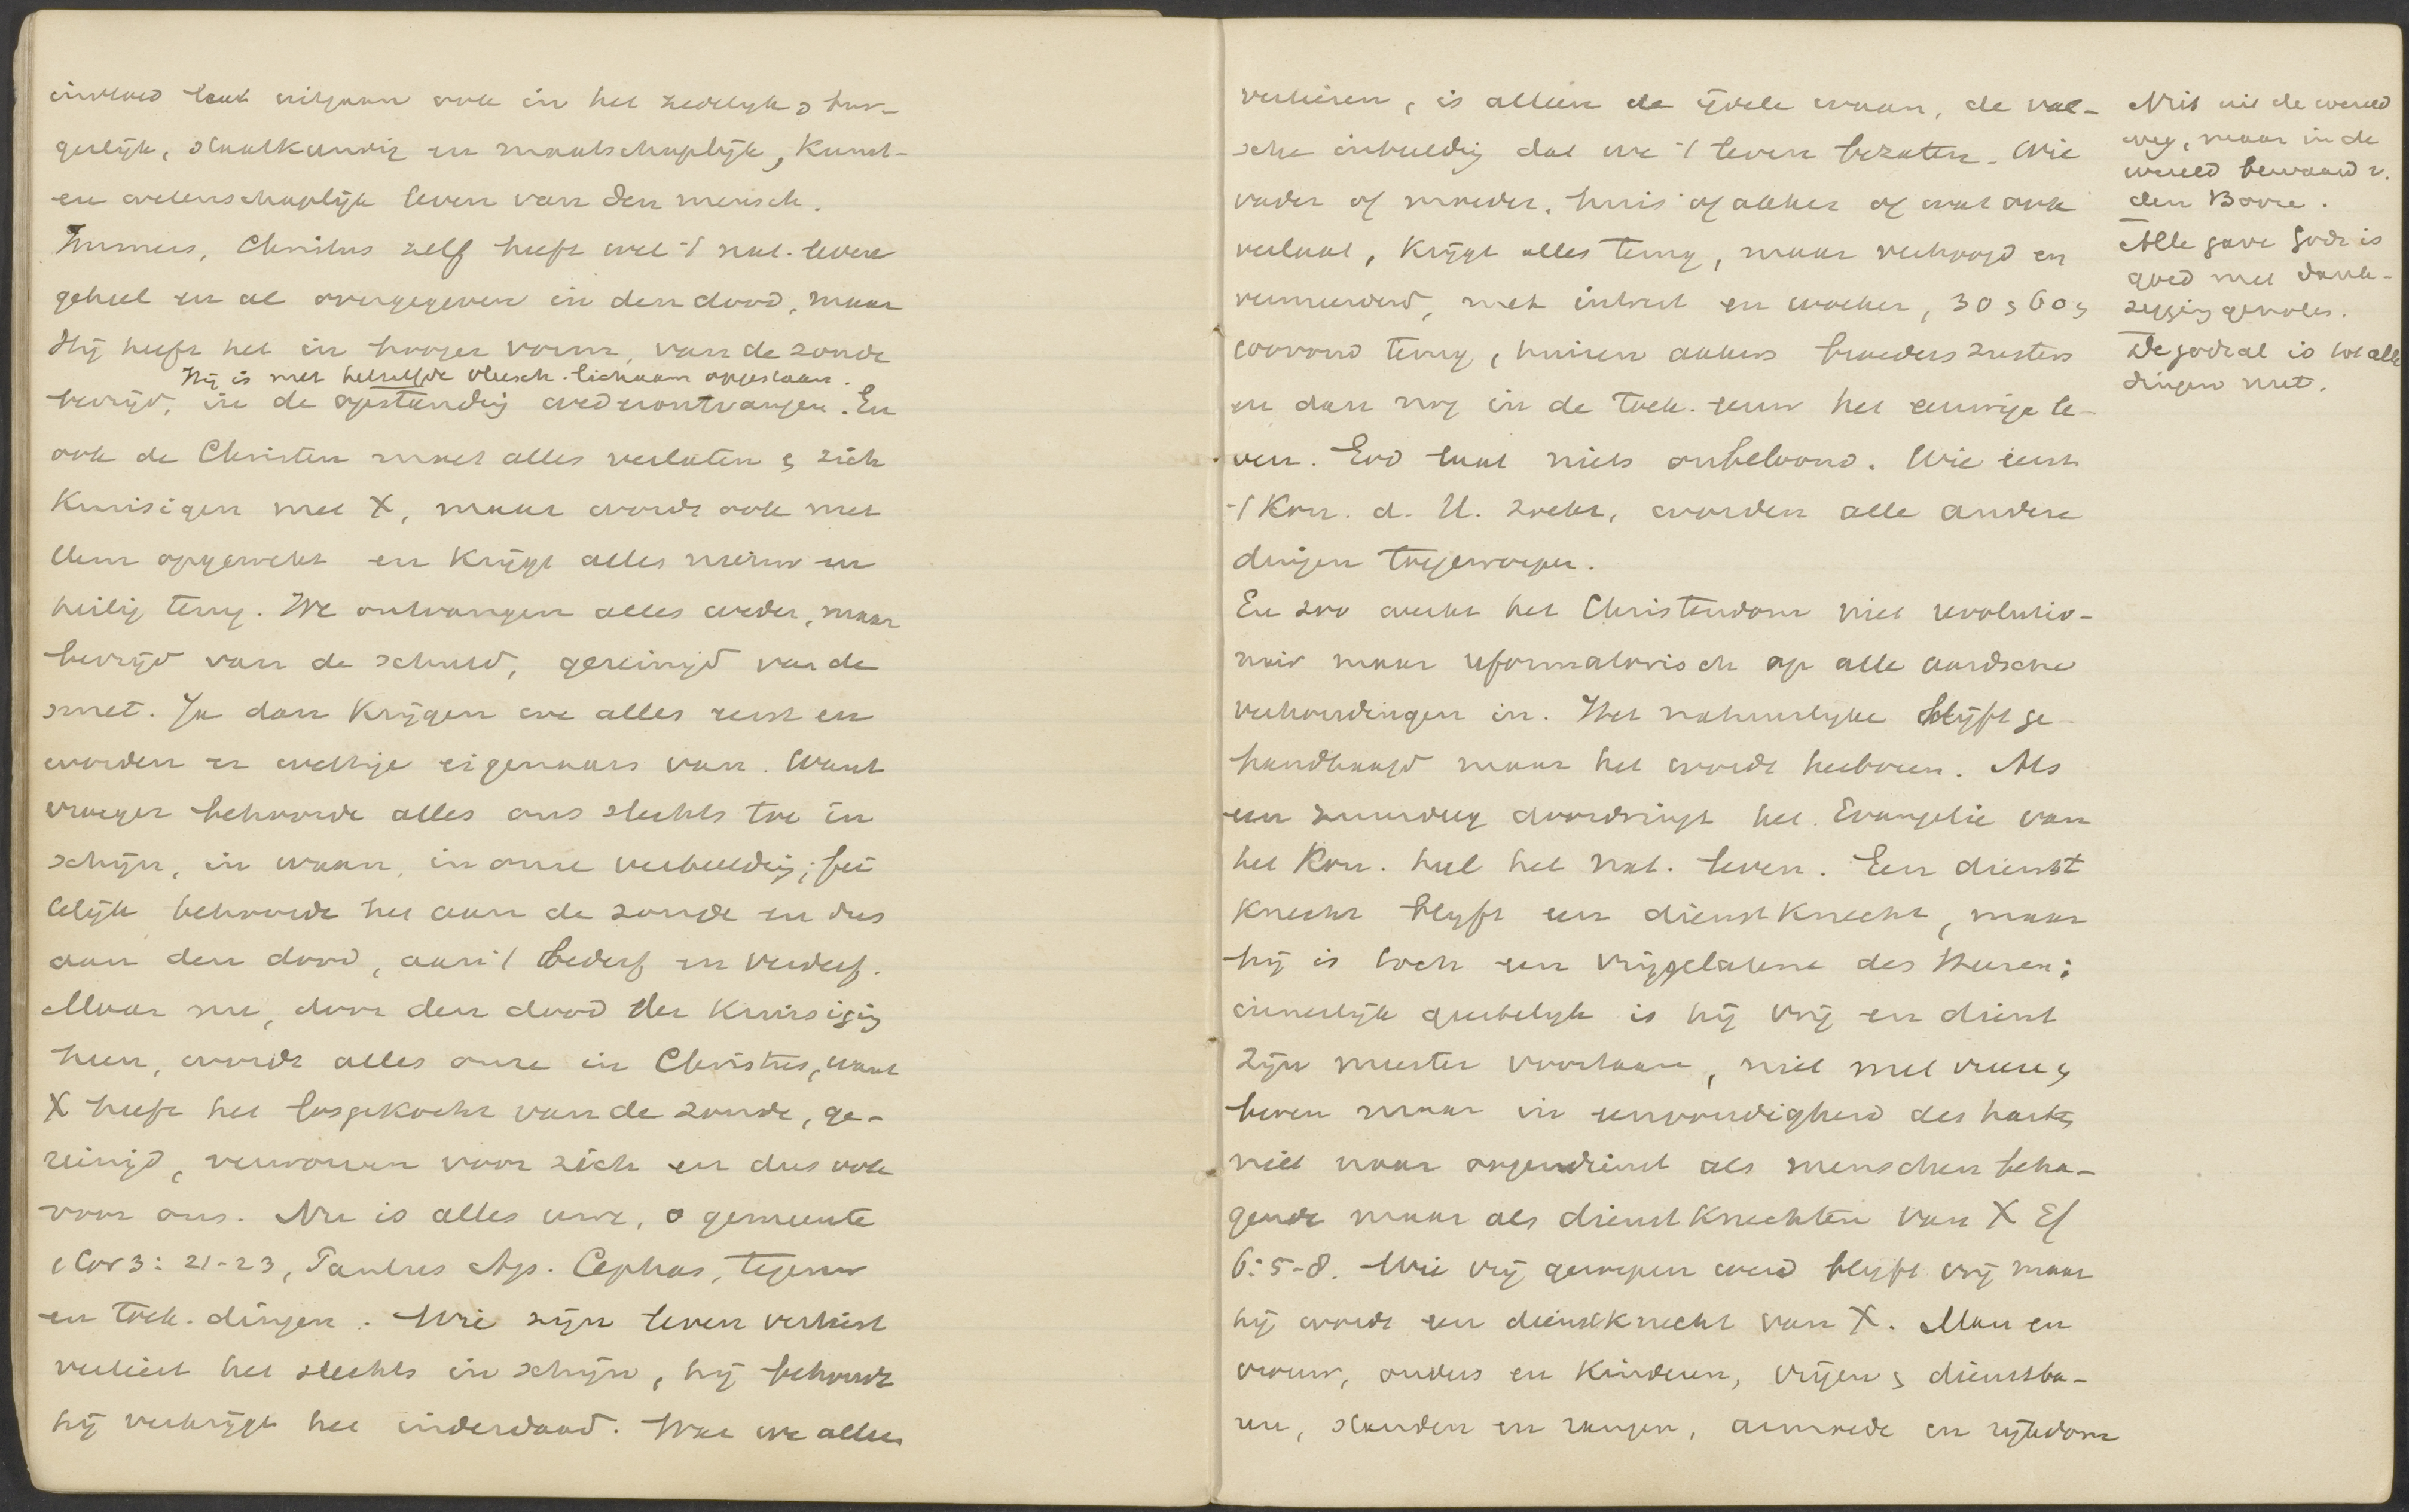 invloed laat uitgaan ook in het zedelijk, bur-
gerlijk, staatkundig en maatschaplijk, Kunst-
en wetenschaplijk leven van den mensch.
Immers, Christus zelf heeft wel 't nat. leven
geheel en al overgegeven in den dood, maar
Hij heeft het in hooger vorm, van de zonde
Hij is met hetzelfde vleesch. lichaam opgestaan.
bevrijd, in de opstanding wederontvangen. En
ook de Christen moet alles verlaten & zich
Kruisigen met X, maar wordt ook met
Hem opgewekt en Krijgt alles nieuw en
heilig terug. We ontvangen alles weder, maar
bevrijd van de schuld, gereinigd van de
smet. Ja dan Krijgen we alles eerst en
worden er wettige eigenaars van. Want
vroeger behoorde alles ons slechts toe in
schijn, in waan, in onze verbeelding; fei
telijk behoorde het aan de zonde en dus
aan den dood, aan 't bederf en verderf.
Maar nu, door den dood der Kruisigig
heen, wordt alles onze in Christus, want
X heeft het losgekocht van de zonde, ge-
reinigd, verworven voor zich en dus ook
voor ons. Nu is alles uwe, o gemeente
1 Cor 3: 21-23, Paulus Ap. Cephas, tegenw
en toek. dingen. Wie zijn leven verliest
verliest het slechts in schijn, hij behoudt
hij verkrijgt het inderdaad. Wat we alleen
verliezen, is alleen de ijdele waan, de val-
sche inbeelding dat we 't leven bezaten. Wie
vader of moeder, huis of akker of wat ook
verlaat, Krijgt alles terug, maar verhoogd en
vermeerderd, met intrest en woeker, 30 & 60 &
100voud terug, huizen akkers broeders zusters
en dan nog in de toek. eeuw het eeuwige le-
ven. God laat niets onbeloond. Wie eerst
't Kon. d. H. zoekt, worden alle andere
dingen toegeworpen.
En zoo werkt het Christendom niet revolutio-
nair maar reformatorisch op alle aardsche
verhoudingen in. Het natuurlijke blijft ge-
handhaafd maar het wordt herboren. Als
een zuurdeeg doordringt het Evangelie van
het Kon. heel het nat. leven. Een dienst
Knecht blijft een dienstKnecht, maar
hij is toch een vrijgelatene des Heeren;
innerlijk geestelijk is hij vrij en dient
zijn meester voortaan, niet met vreeze &
beven maar in eenvoudigheid des harten,
niet naar oogendienst als menschen beha-
gende maar als dienstKnechten van X Ef
6: 5-8. Wie vrij geroepen werd blijft vrij maar
hij wordt een dienstKnecht van X. Man en
vrouw, ouders en Kinderen, vrijen & dienstba-
ren, standen en rangen, armoede en rijkdom
Niet uit de wereld
weg, maar in de
wereld bewaard v.
den Booze.
Alle gave Gods is
goed met dank-
zegging genoten.
De godzal. is tot alle
dingen nut.